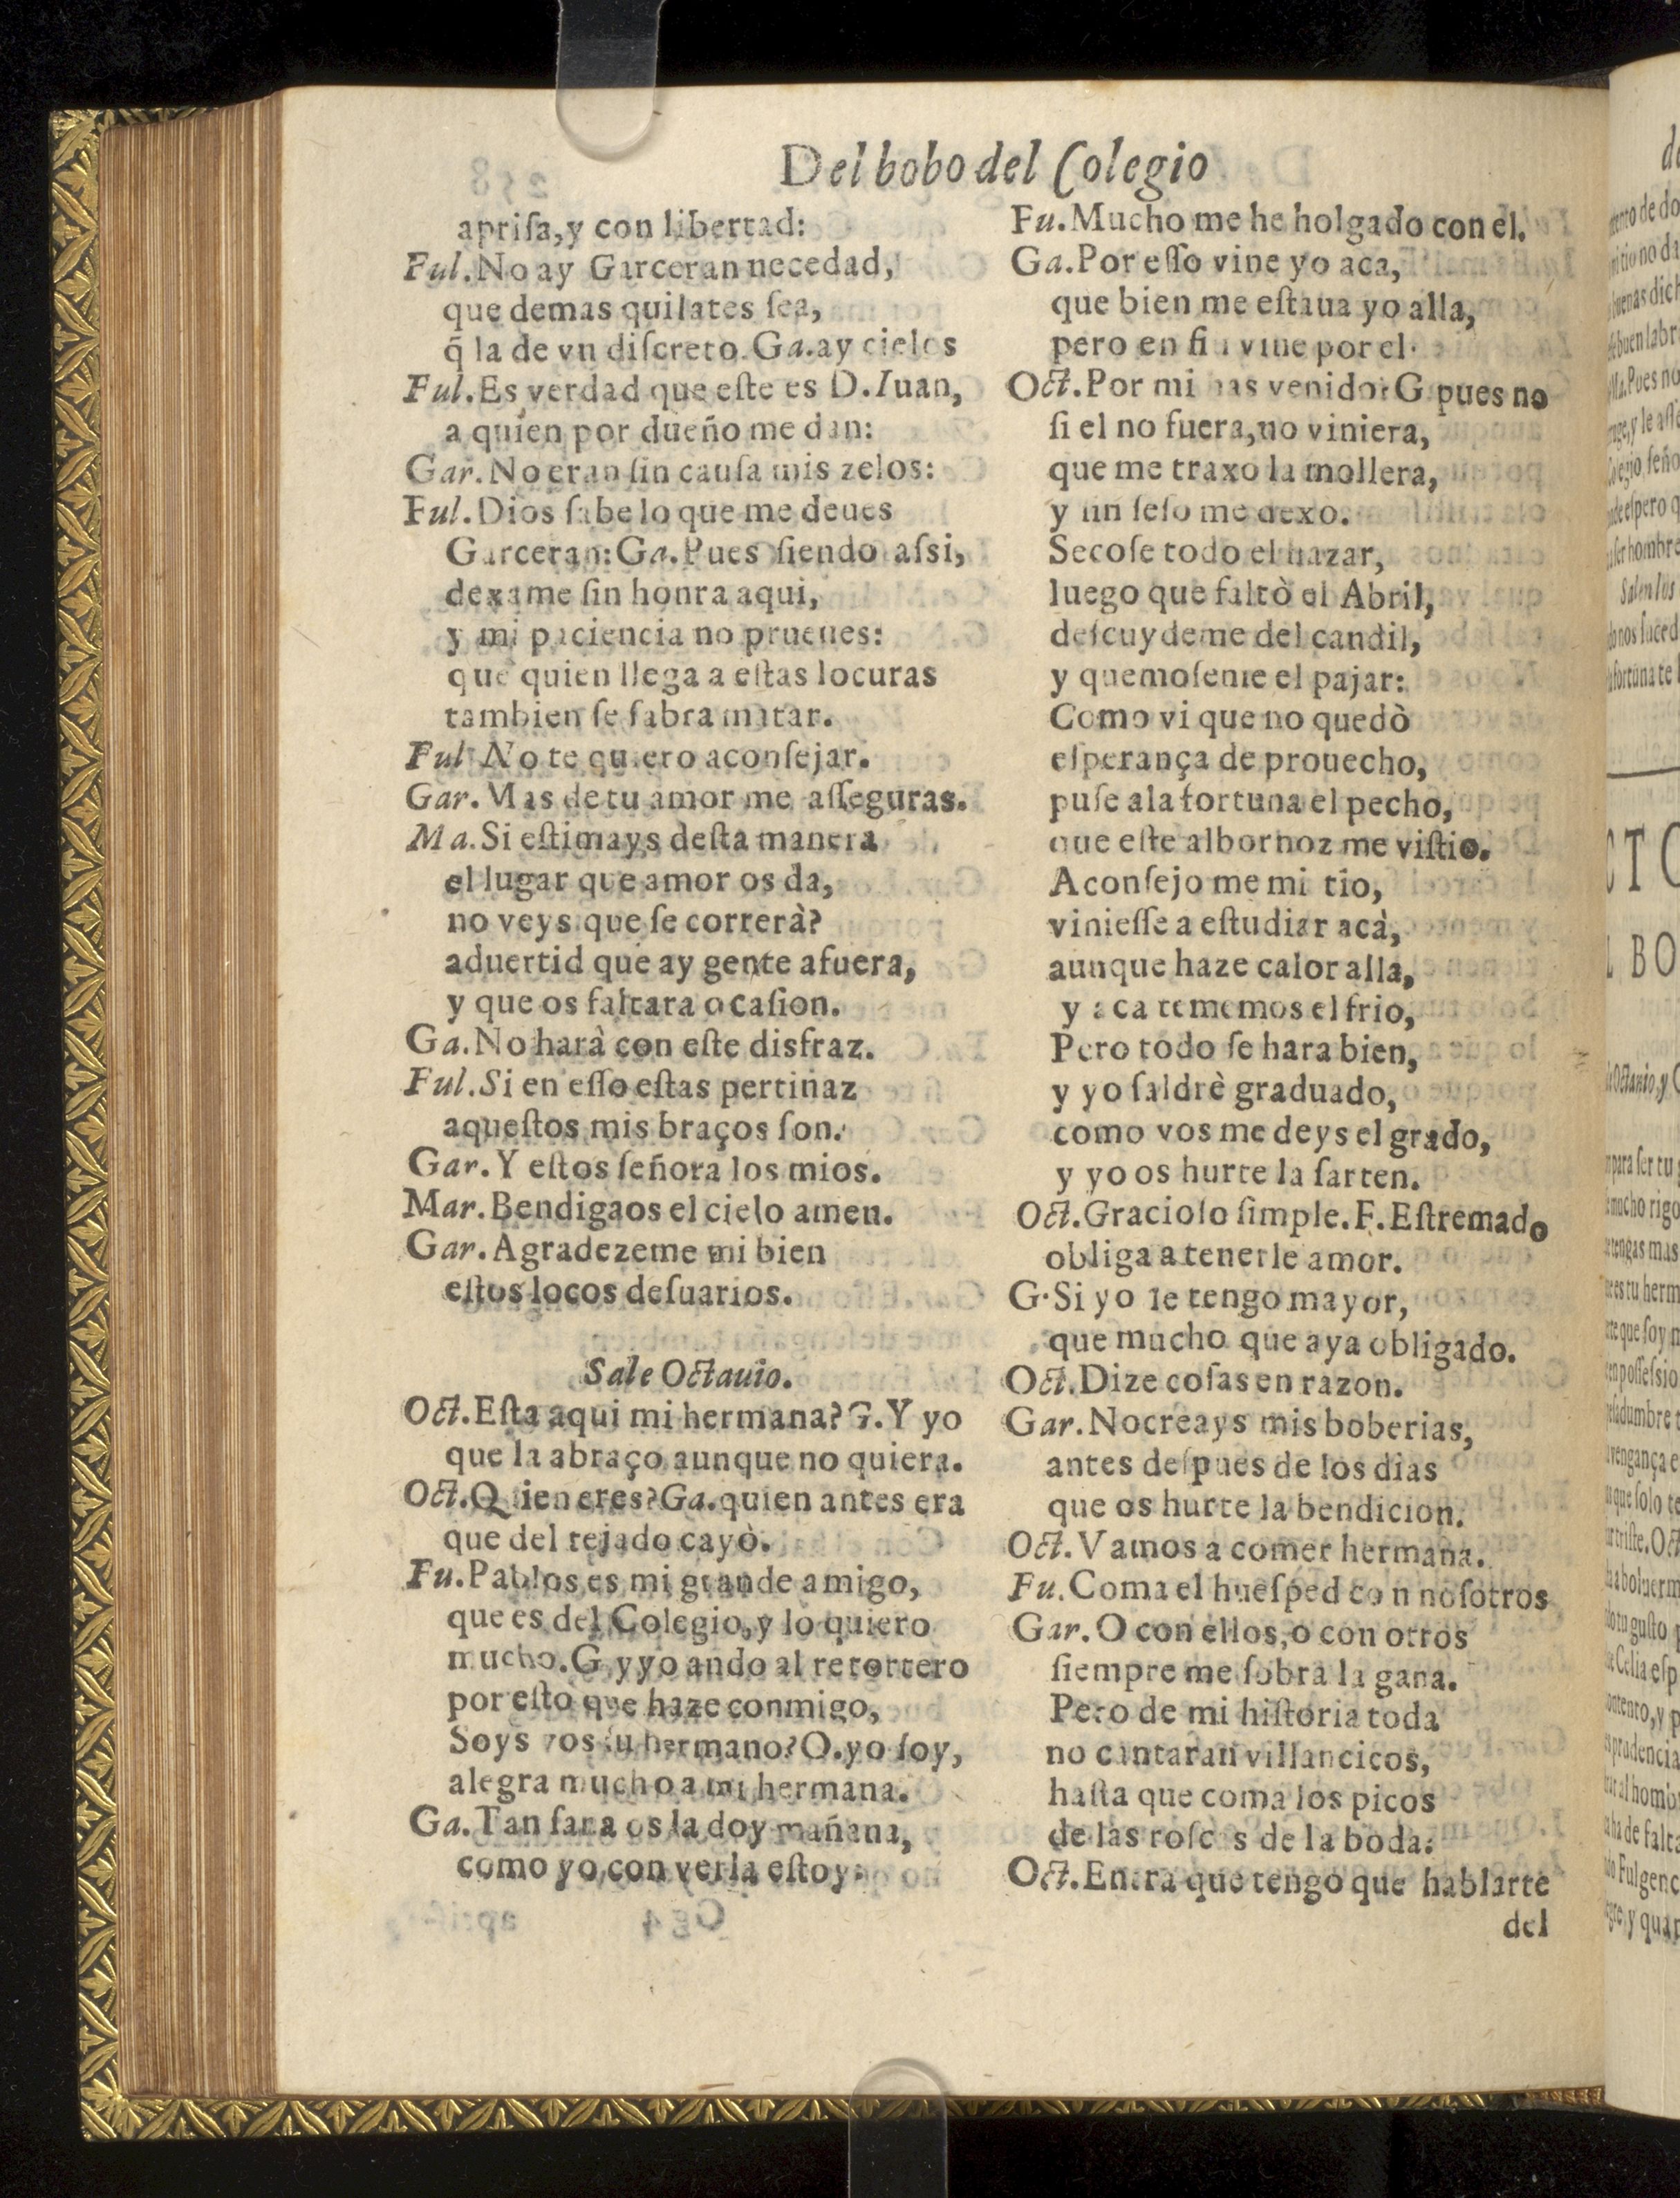 Del bobo del Colegio
aprisa,y con libertad:
Ful.No ay Garceran necedad,
que demas quilates sea,
q̃ la de vn discreto.Ga.ay cielos
Ful.Es verdad que este es D.Iuan,
a quien por dueño me dan:
Gar.No eran sin causa mis zelos:
Ful.Dios sabe lo que me deues
Garceran:Ga.Pues siendo assi,
dexame sin honra aqui,
y mi paciencia no prueues:
que quien llega a estas locuras
tambien se sabra matar.
Ful No te quiero aconsejar.
Gar.Mas de tu amor me asseguras.
Ma.Si estimays desta manera
el lugar que amor os da,
no veys que se correrà?
aduertid que ay gente afuera,
y que os faltara ocasion.
Ga.No harà con este disfraz.
Ful.Si en esso estas pertinaz
aquestos mis braços son.
Gar.Y estos señora los mios.
Mar.Bendigaos el cielo amen.
Gar.Agradezeme mi bien
estos locos desuarios.
Sale Octauio.
Oct.Esta aqui mi hermana?G.Y yo
que la abraço aunque no quiera.
Oct.Quien eres?Ga.quien antes era
que del tejado cayò.
Fu.Pablos es mi grande amigo,
que es del Colegio,y lo quiero
mucho.G.y yo ando al retortero
por esto que haze conmigo,
Soys vos su hermano?O.yo soy,
alegra mucho a mi hermana.
Ga.Tan sana os la doy mañana,
como yo,con verla estoy:
Fu.Mucho me he holgado con el.
Ga.Por esso vine yo aca,
que bien me estaua yo alla,
pero en fin vine por el.
Oct.Por mi has venido?G.pues no
si el no fuera,no viniera,
que me traxo la mollera,
y sin seso me dexo.
Secose todo el hazar,
luego que faltò el Abril,
descuydeme del candil,
y quemoseme el pajar:
Como vi que no quedò
esperança de prouecho,
puse a la fortuna el pecho,
que este albornoz me vistio.
Aconsejo me mi tio,
viniesse a estudiar acà,
aunque haze calor alla,
y aca tememos el frio,
Pero todo se hara bien,
y yo saldrè graduado,
como vos me deys el grado,
y yo os hurte la sarten.
Oct.Gracioso simple.F.Estremado
obliga a tenerle amor.
G.Si yo le tengo mayor,
que mucho que aya obligado.
Oct.Dize cosas en razon.
Gar.No creays mis boberias,
antes despues de los dias
que os hurte la bendicion.
Oct.Vamos a comer hermana.
Fu.Coma el huesped con nosotros
Gar.O con ellos,o con otros
siempre me sobra la gana.
Pero de mi historia toda
no cantaran villancicos,
hasta que coma los picos
de las roscas de la boda.
Oct.Entra que tengo que hablarte
del